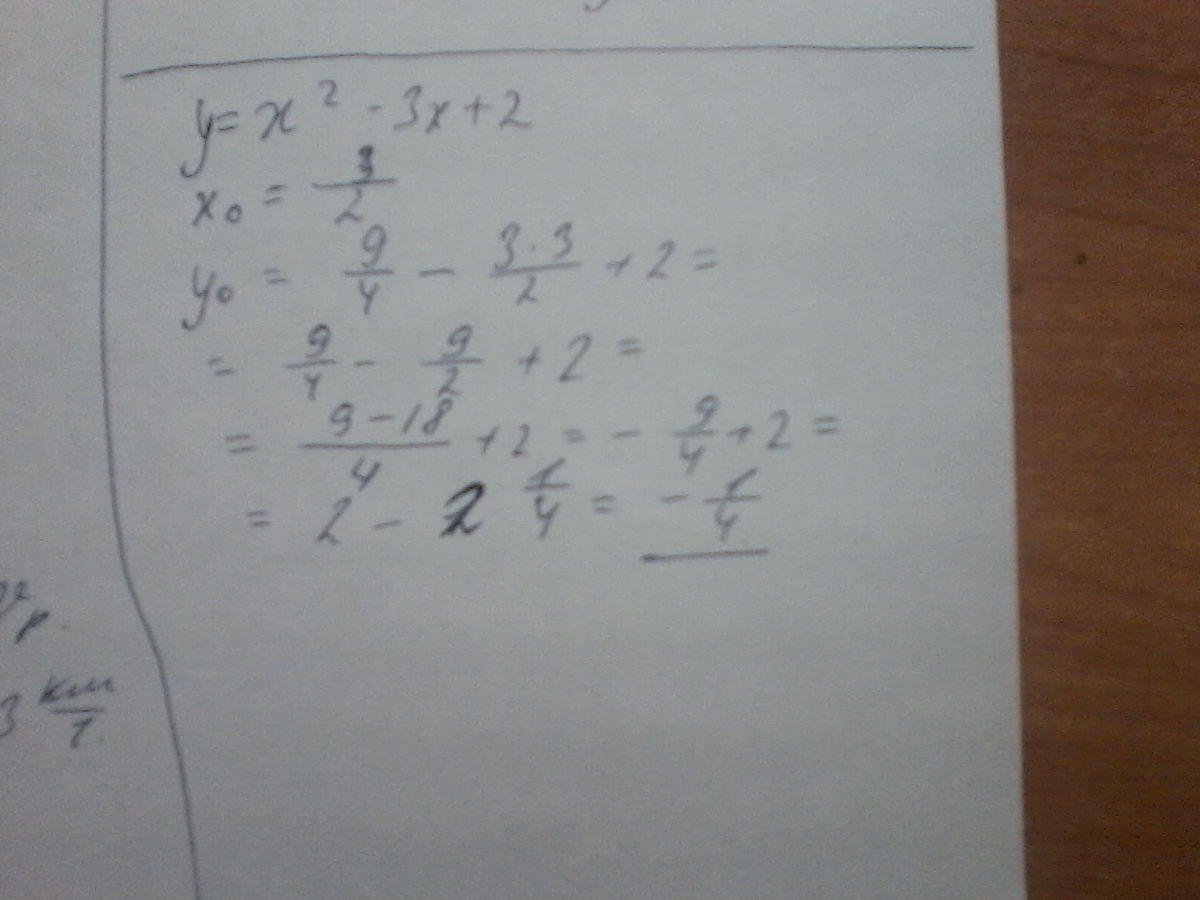 y = x² - 3x + 2
x₀ = 3/2
y₀ = 9/4 - 3·3/2 + 2 =
= 9/4 - 9/2 + 2 =
= 9-18/4 + 2 = - 9/4 + 2 =
= 2 - 2 1/4 = - 1/4
р.
3 км/